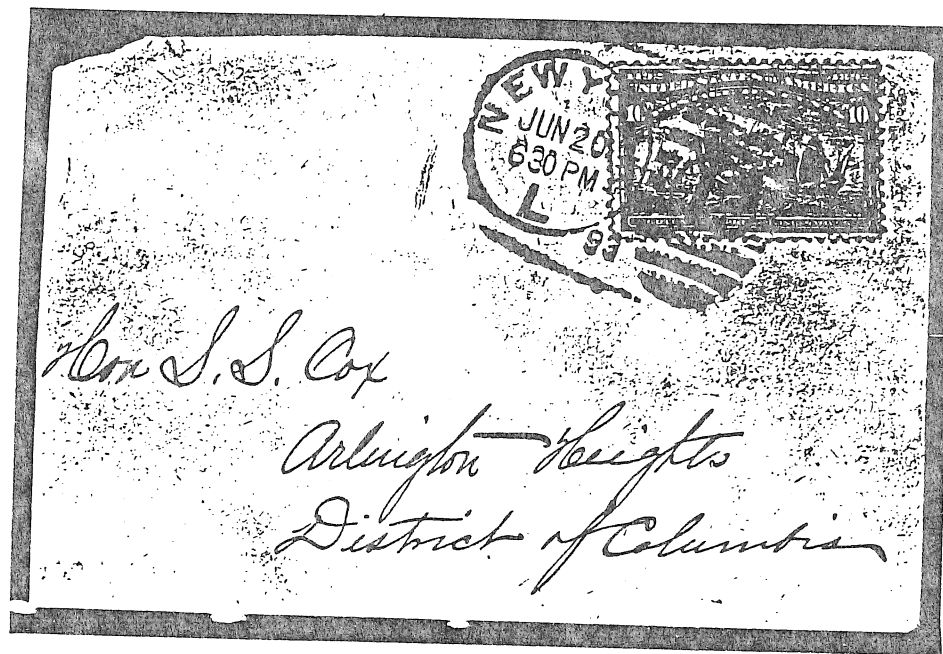 NEW Y
JUN 20
630 PM
L
93
UNITED STATES OF AMERICA
10 10
Hon S. S. Cox
Arlington Heights
District of Columbia